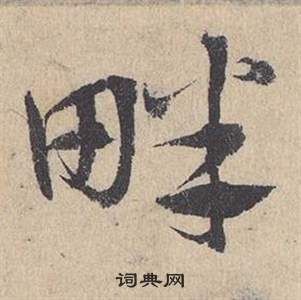 畔
词典网